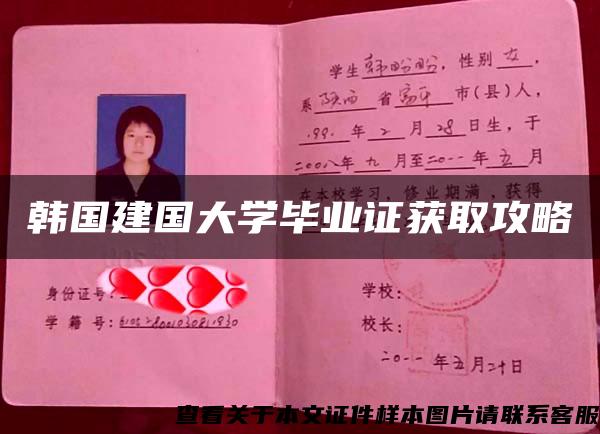 学生韩盼盼，性别女，
系陕西省富平市(县)人，
1991年2月28日生，于
二00八年九月至二0一一年五月
在本校学习，修业期满，获得
韩国建国大学毕业证获取攻略
身份证号：
学籍号：
学校：
校长：
二0一一年五月二十日
查看关于本文证件样本图片请联系客服